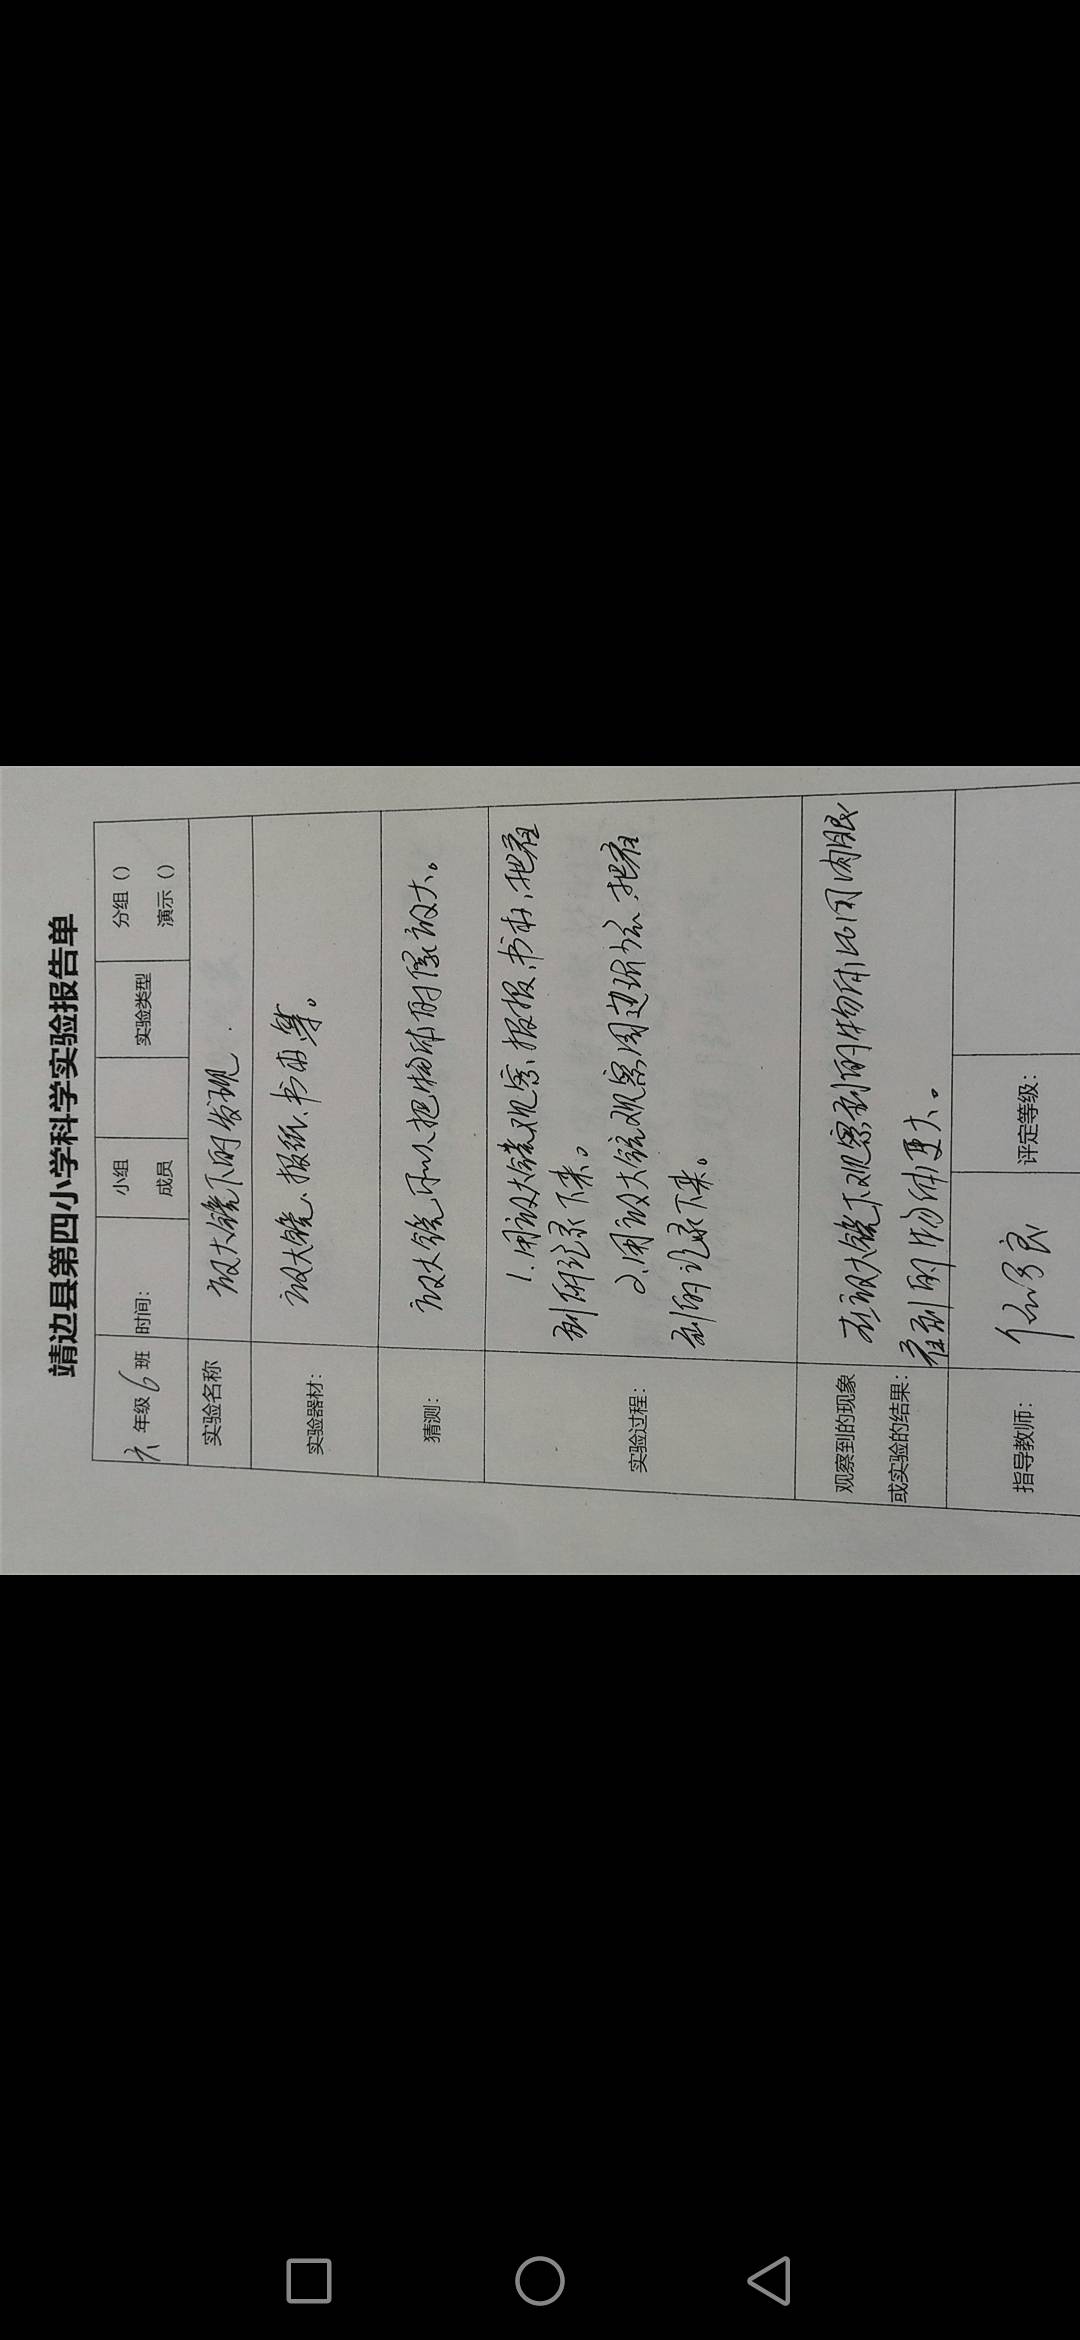 靖边县第四小学科学实验报告单
六年级6班 时间: 小组成员 实验类型 分组() 演示()
实验名称 放大镜下的发现.
实验器材: 放大镜、报纸、书本等。
猜测: 放大镜可以把物体的像放大。
实验过程: 1.用放大镜观察、报报、书本,把看
到的记录下来。
2.用放大镜观察周边环境,把看
到的记录下来。
观察到的现象 在放大镜下观察到的物体比用肉眼
或实验的结果: 看到的物体更大。
指导教师: 评定等级: